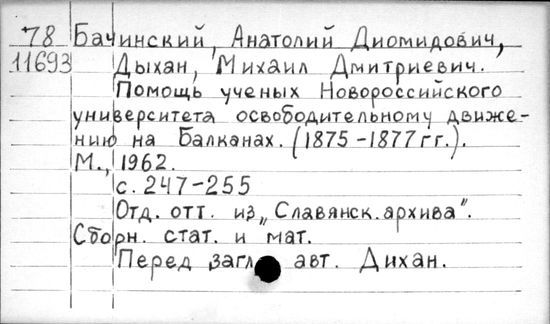 78 Бачинский, Анатолий Диомидович,
11693 Дыхан, Михаил Дмитриевич.
Помощь ученых Новороссийского
университета освободительному движе-
нию на Балканах. (1875-1877 гг.).
М., 1962.
с. 247-255
Отд. отт. из „Славянск. архива".
Сборн. стат. и мат.
Перед загл. авт. Дихан.